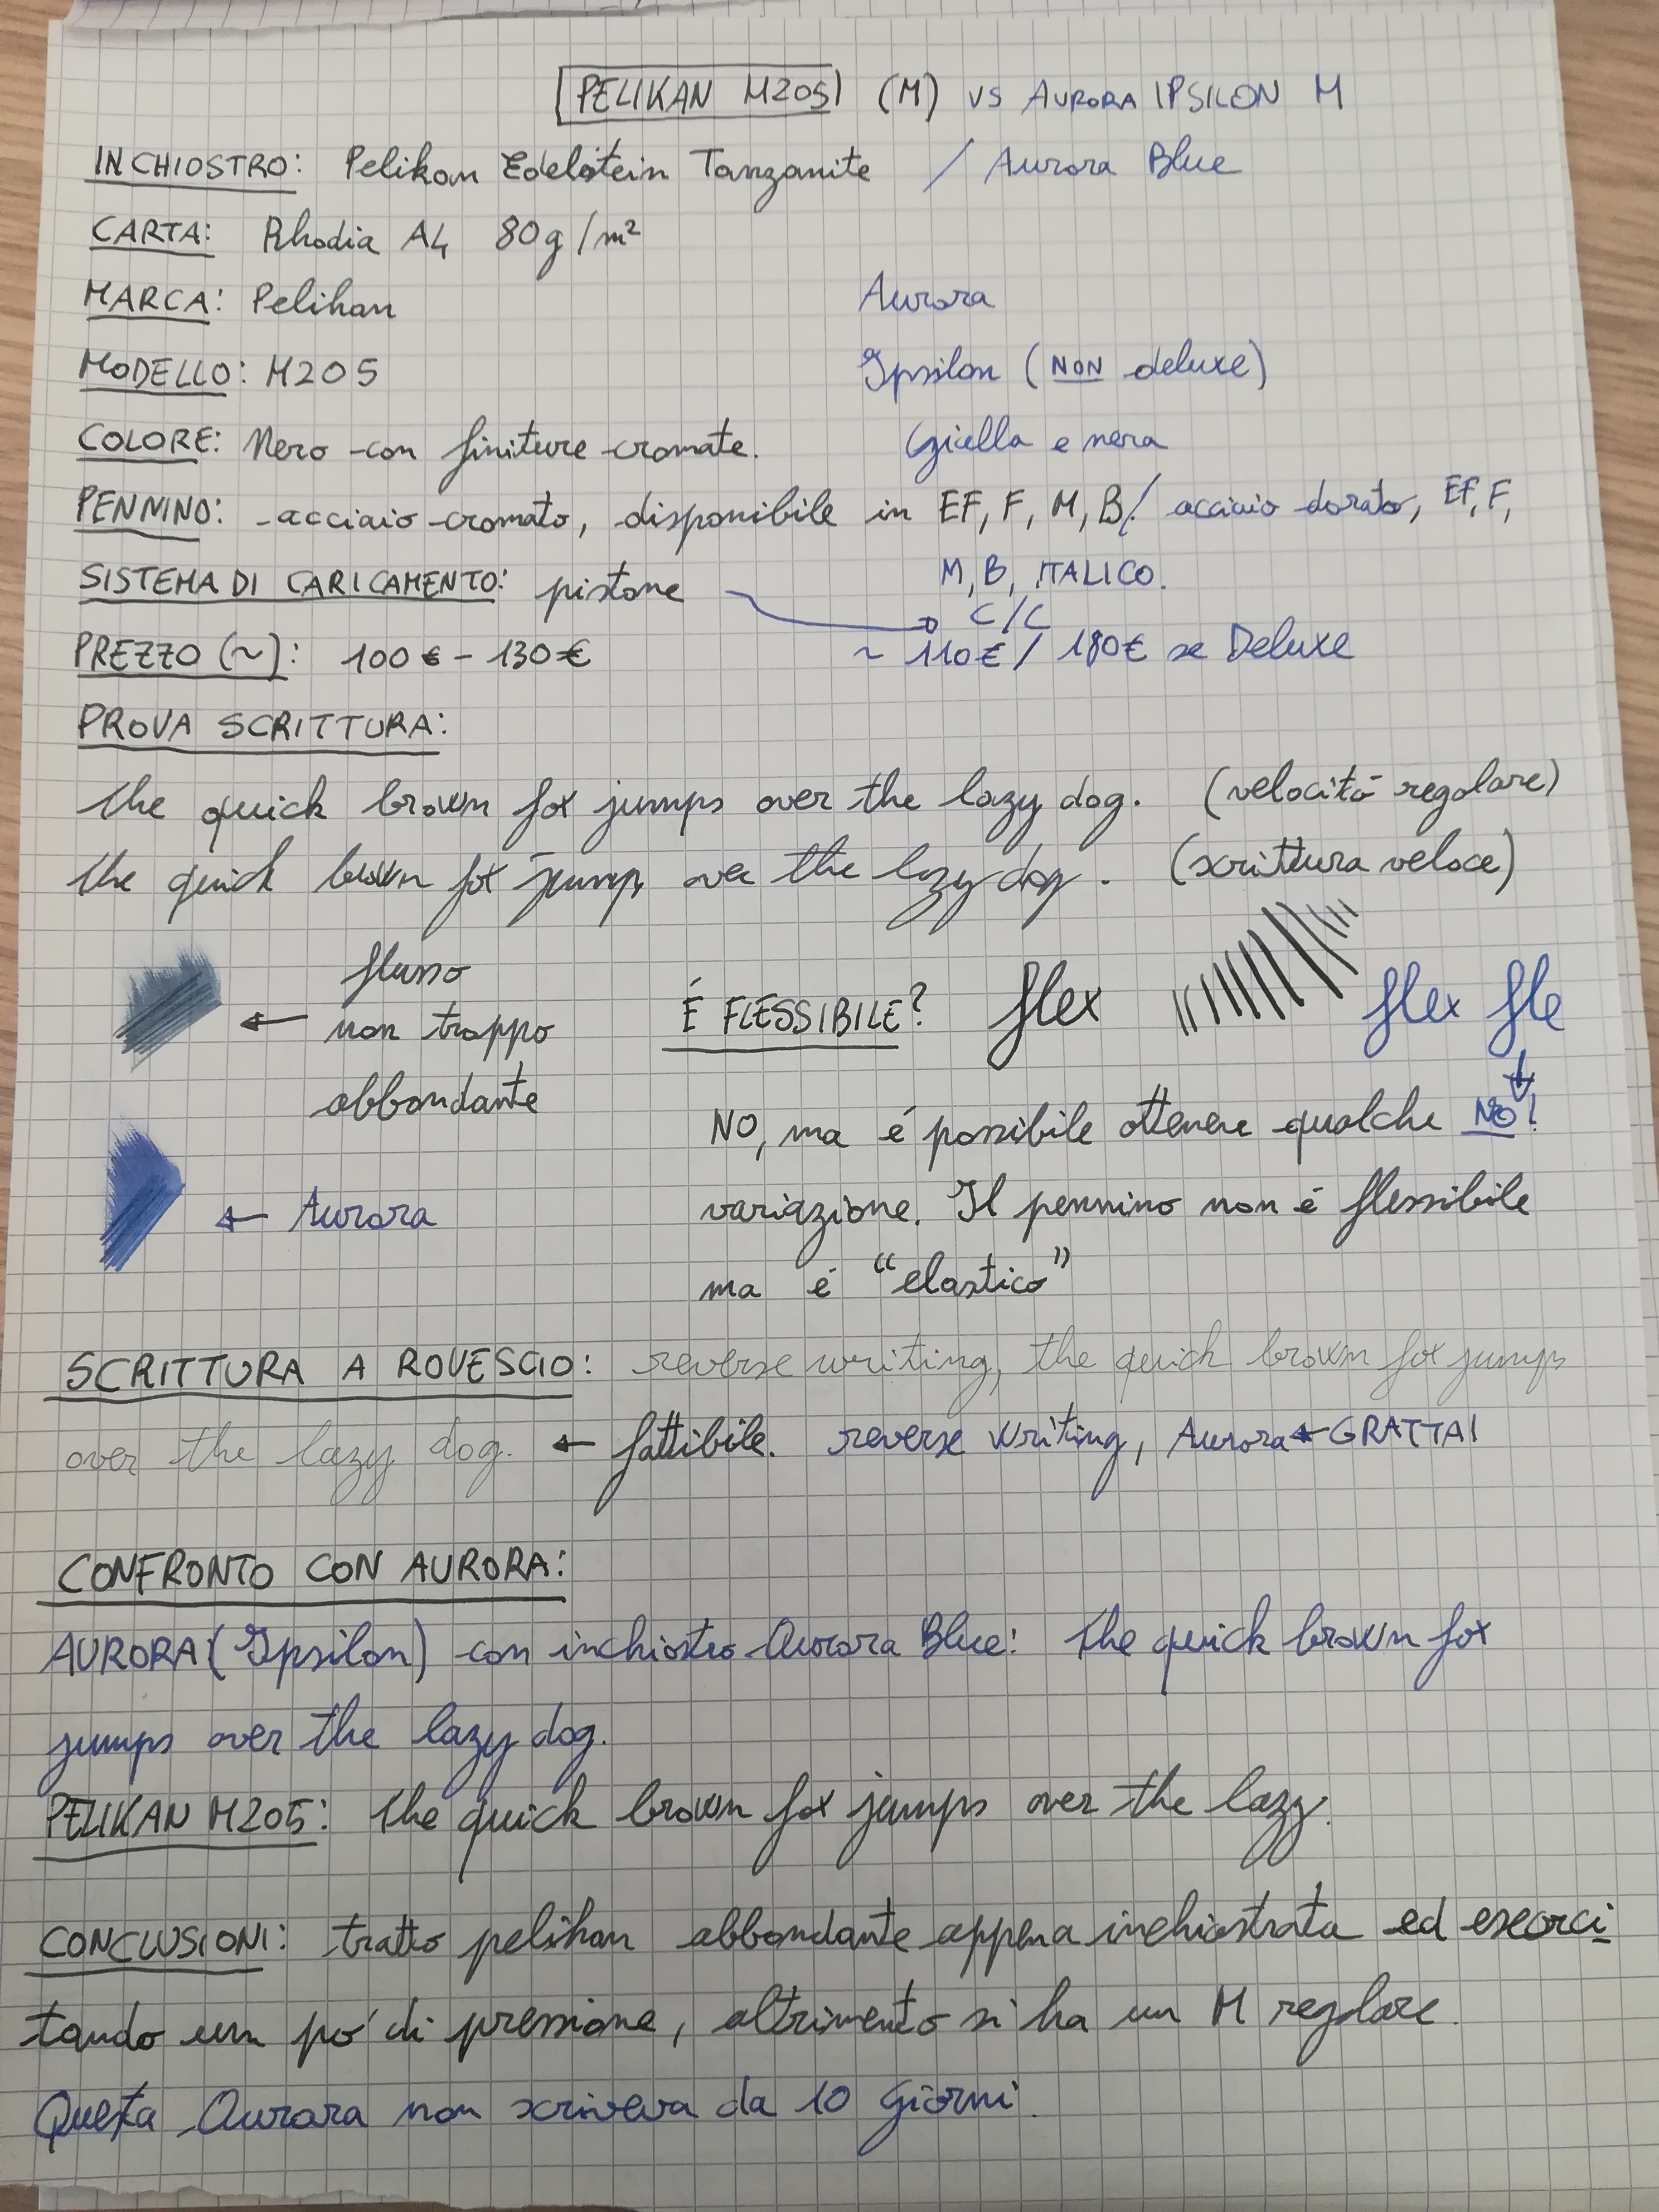 PELIKAN M205 (M) vs AURORA IPSILON M
INCHIOSTRO: Pelikan Edelstein Tanzanite / Aurora Blue
CARTA: Rhodia A4 80g/m²
MARCA: Pelikan Aurora
MODELLO: M205 Ipsilon (NON deluxe)
COLORE: Nero con finiture cromate. Gialla e nera
PENNINO: acciaio cromato, disponibile in EF, F, M, B / acciaio dorato, EF, F,
M, B, ITALICO.
SISTEMA DI CARICAMENTO: pistone C/C
PREZZO (~): 100€ - 130€ ~ 110€ / 180€ se Deluxe
PROVA SCRITTURA:
the quick brown fox jumps over the lazy dog. (velocitá regolare)
the quick brown fox jumps over the lazy dog. (scrittura veloce)
flusso
non troppo
abbondante
← Aurora
É FLESSIBILE? flex flex fle
NO, ma é possibile ottenere qualche NO!
variazione. Il pennino non é flessibile
ma é "elastico"
SCRITTURA A ROVESCIO: reverse writing, the quick brown fox jumps
over the lazy dog. ← fattibile. reverse writing, Aurora ← GRATTA!
CONFRONTO CON AURORA:
AURORA (Ipsilon) con inchiostro Aurora Blue: the quick brown fox
jumps over the lazy dog.
PELIKAN M205: the quick brown fox jumps over the lazy.
CONCLUSIONI: tratto pelikan abbondante appena inchiostrata ed eserci
tando un po' di pressione, altrimento si ha un M regolare.
Questa Aurora non scriveva da 10 giorni.